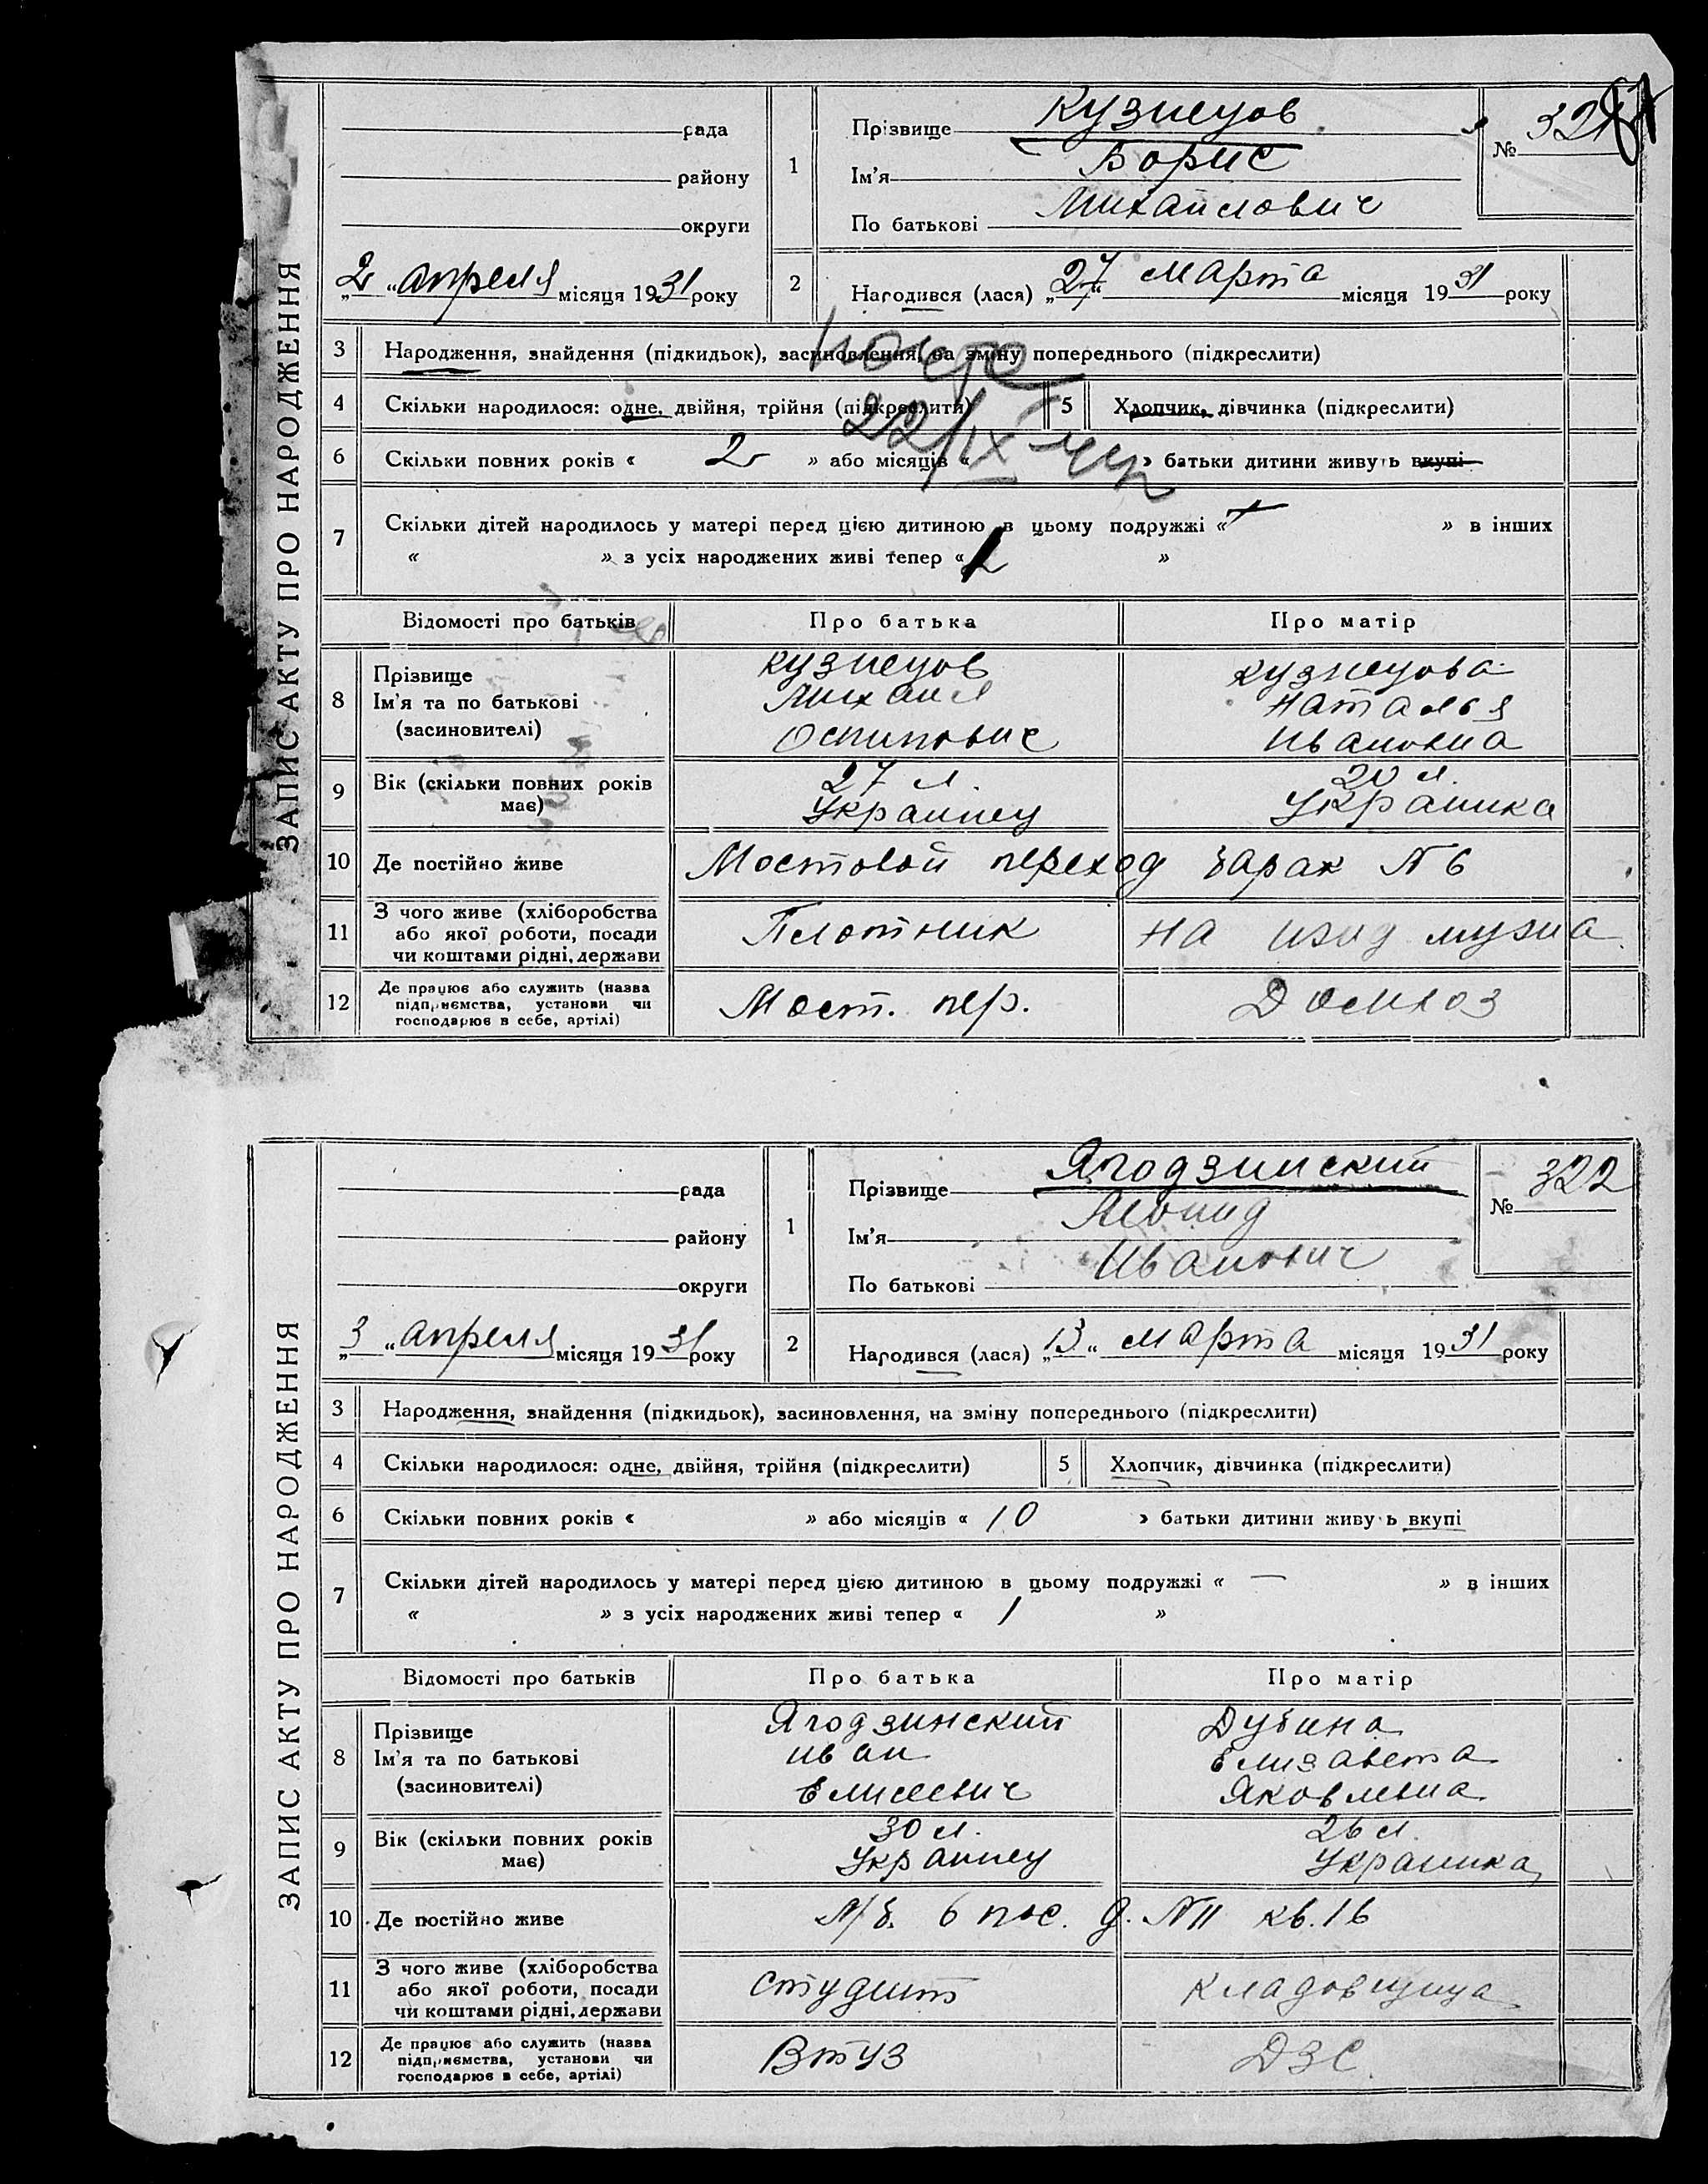 ЗАПИС АКТУ ПРО НАРОДЖЕННЯ
рада
району
округи
„2“ апреля місяця 1931 року
1
Прізвище Кузнецов
Ім'я Борис
По батькові Михайлович
№ 321
2
Народився (лася) „27“ марта місяця 1931 року
3
Народження, знайдення (підкидьок), засиновлення, на зміну попереднього (підкреслити)
4
Скільки народилося: одне, двійня, трійня (підкреслити)
5
Хлопчик, дівчинка (підкреслити)
22/IX
6
Скільки повних років « 2 » або місяців « » батьки дитини живуть вкупі
7
Скільки дітей народилось у матері перед цією дитиною в цьому подружжі « » в інших
« » з усіх народжених живі тепер « »
Відомості про батьків
Про батька
Про матір
8
Прізвище
Ім'я та по батькові
(засиновителі)
Кузнецов
Михаил
Осипович
Кузнецова
Наталья
Ивановна
9
Вік (скільки повних років
має)
27 л.
Украинец
20 л.
Украинка
10
Де постійно живе
Мостовой переход барак N 6
11
З чого живе (хліборобства
або якої роботи, посади
чи коштами рідні, держави
Плотник
на ижд мужа
12
Де працює або служить (назва
підприємства, установи чи
господарює в себе, артілі)
Мост. пер.
Домхоз
ЗАПИС АКТУ ПРО НАРОДЖЕННЯ
рада
району
округи
„3“ апреля місяця 1931 року
1
Прізвище Ягодзинский
Ім'я Леонид
По батькові Иванович
№ 322
2
Народився (лася) „13“ марта місяця 1931 року
3
Народження, знайдення (підкидьок), засиновлення, на зміну попереднього (підкреслити)
4
Скільки народилося: одне, двійня, трійня (підкреслити)
5
Хлопчик, дівчинка (підкреслити)
6
Скільки повних років « » або місяців « 10 » батьки дитини живуть вкупі
7
Скільки дітей народилось у матері перед цією дитиною в цьому подружжі « — » в інших
« » з усіх народжених живі тепер « 1 »
Відомості про батьків
Про батька
Про матір
8
Прізвище
Ім'я та по батькові
(засиновителі)
Ягодзинский
Иван
Елисеевич
Дубина
Елизавета
Яковлевна
9
Вік (скільки повних років
має)
30 л.
Украинец
26 л.
Украинка
10
Де постійно живе
Л/б. 6 пос. д. N 11 кв. 16
11
З чого живе (хліборобства
або якої роботи, посади
чи коштами рідні, держави
студент
кладовщица
12
Де працює або служить (назва
підприємства, установи чи
господарює в себе, артілі)
Втуз
ДЗС